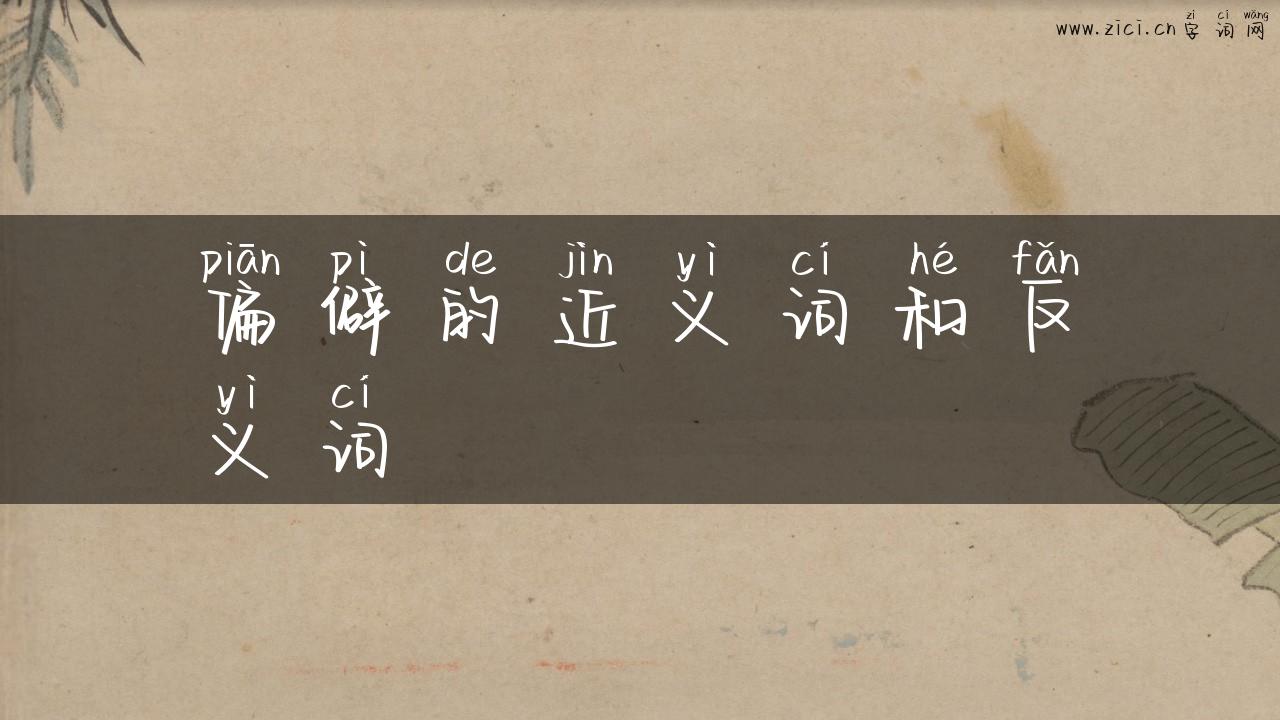 www.zici.cn zì cí wǎng
字词网
piān pì de jìn yì cí hé fǎn
偏僻的近义词和反
yì cí
义词